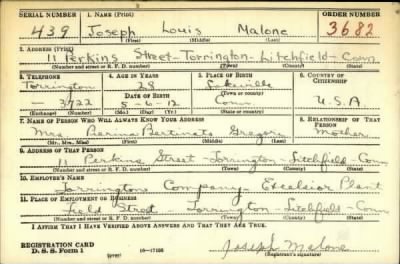 SERIAL NUMBER 1. NAME (Print) ORDER NUMBER
439 Joseph Louis Malone 3682
(First) (Middle) (Last)
2. ADDRESS (Print)
11 Perkins Street - Torrington - Litchfield - Conn
(Number and street or R. F. D. number) (Town) (County) (State)
3. TELEPHONE 4. AGE IN YEARS 5. PLACE OF BIRTH 6. COUNTRY OF CITIZENSHIP
Torrington 28 Lakeville
DATE OF BIRTH (Town or county)
3922 5-6-12 Conn. U.S.A.
(Exchange) (Number) (Mo.) (Day) (Yr.) (State or country)
7. NAME OF PERSON WHO WILL ALWAYS KNOW YOUR ADDRESS 8. RELATIONSHIP OF THAT PERSON
Mrs Gregory Mother
(Mr., Mrs., Miss) (First) (Middle) (Last)
9. ADDRESS OF THAT PERSON
11 Perkins Street - Torrington - Litchfield - Conn
(Number and street or R. F. D. number) (Town) (County) (State)
10. EMPLOYER'S NAME
Torrington Company Excelsior Plant
11. PLACE OF EMPLOYMENT OR BUSINESS
Field Street Torrington - Litchfield - Conn
(Number and street or R. F. D. number) (Town) (County) (State)
I AFFIRM THAT I HAVE VERIFIED ABOVE ANSWERS AND THAT THEY ARE TRUE.
REGISTRATION CARD
D. S. S. FORM 1 (over) 16-17105 Joseph Malone
(Registrant's signature)